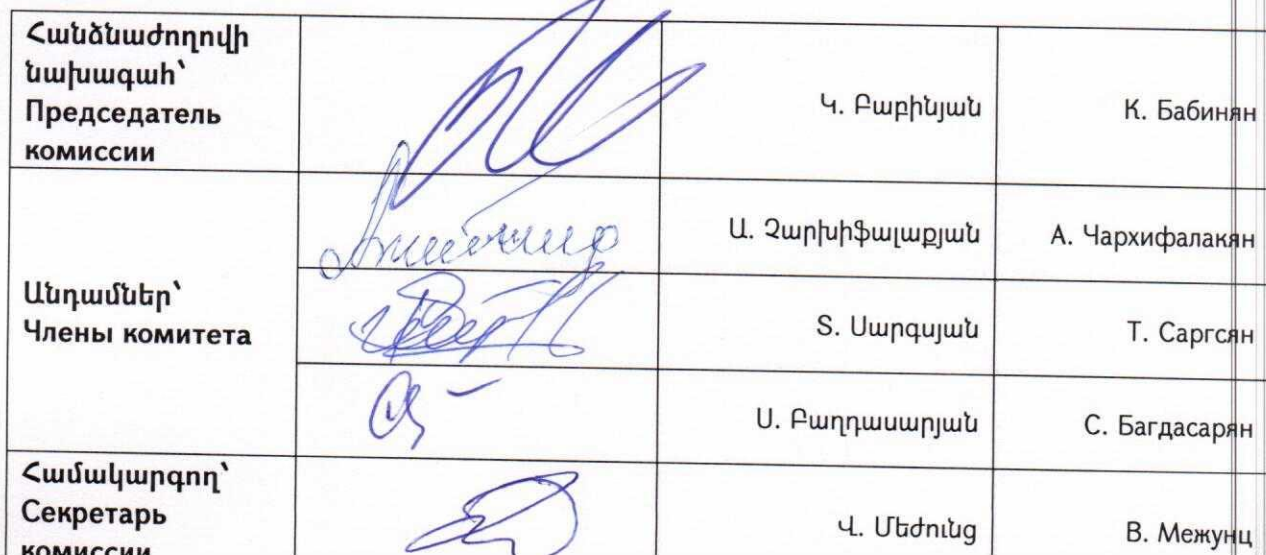 Հանձնաժողովի
նախագահ՝
Председатель
комиссии
Կ. Բաբինյան
К. Бабинян
Անդամներ՝
Члены комитета
Ա. Չարխիֆալաքյան
А. Чархифалакян
Տ. Սարգսյան
Т. Саргсян
Ս. Բաղդասարյան
С. Багдасарян
Համակարգող՝
Секретарь
комиссии
Վ. Մեժունց
В. Межунц